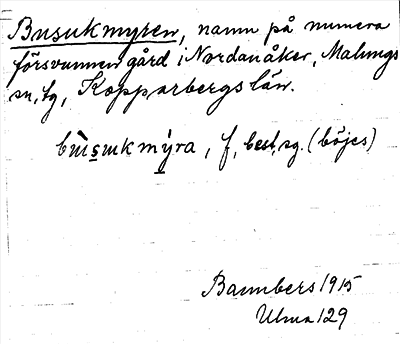 Busukmyren, namn på numera
försvunnen gård i Nordanåker, Malungs
sn, hg, Kopparbergs län.
bùsukmýra, f, best, sg. (böjes)
Bannbers 1915
Ulma 129